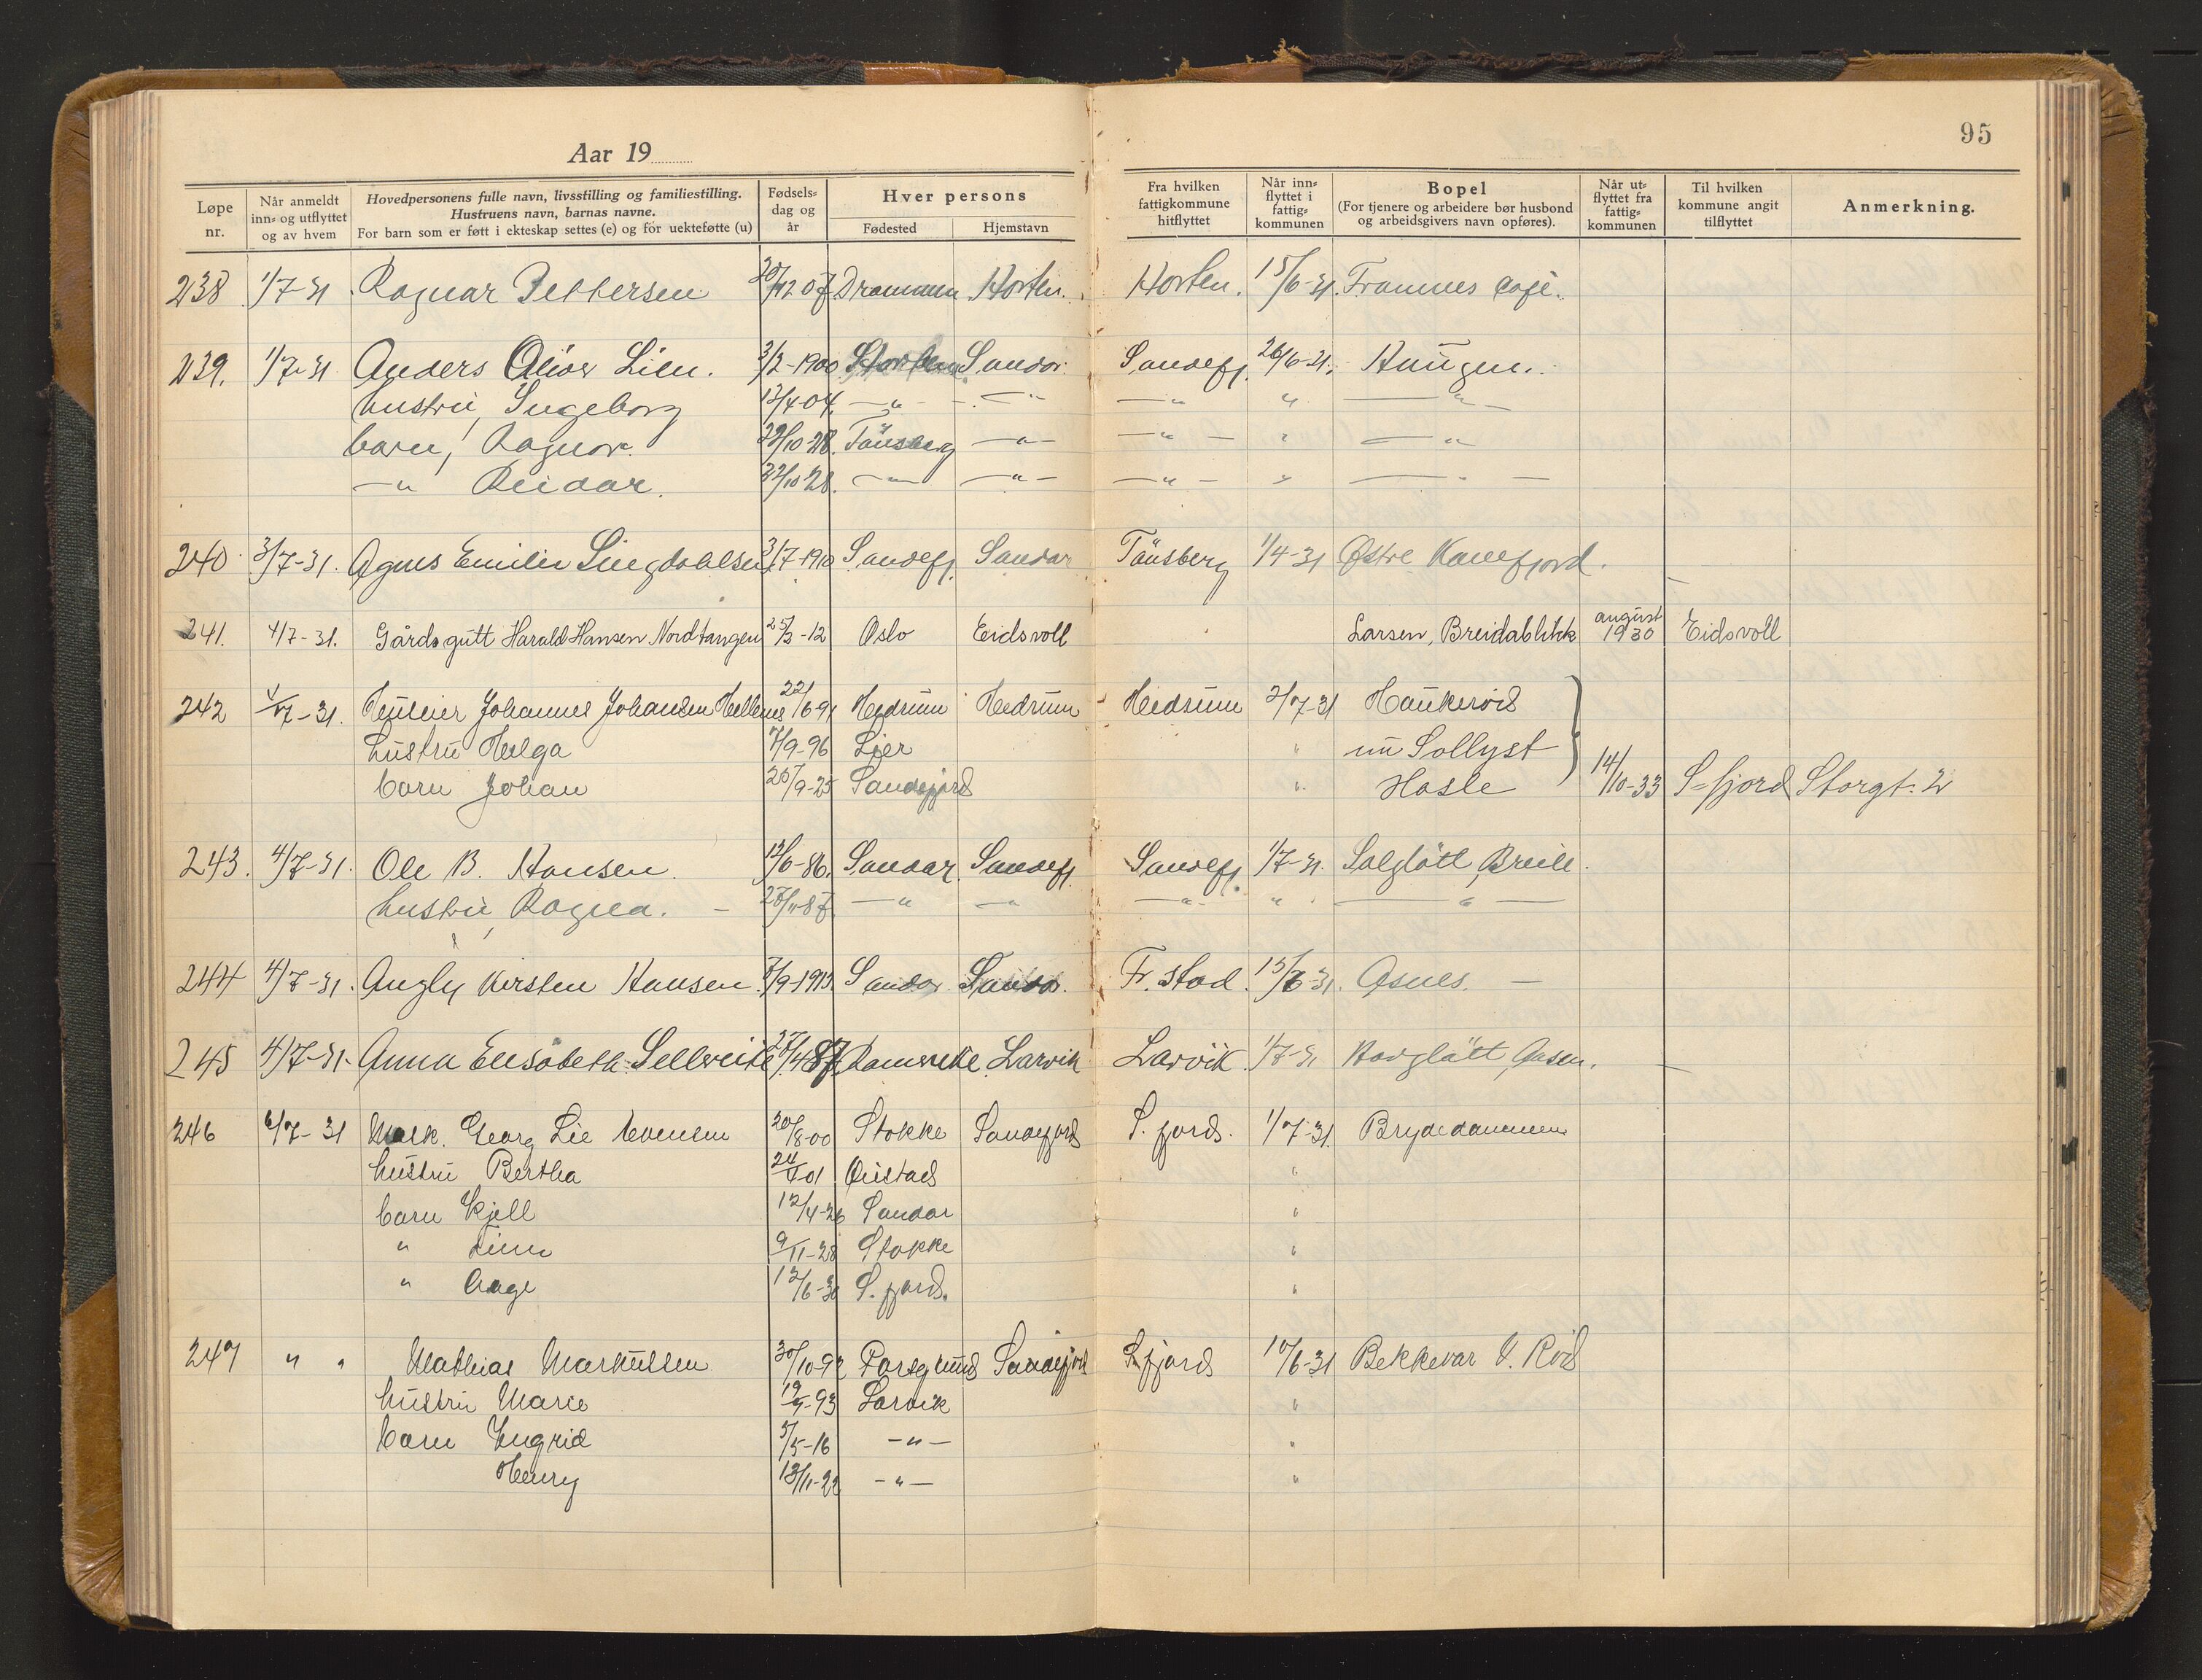 95
Aar 19
Løpe nr. Når anmeldt inn- og utflyttet og av hvem Hovedpersonens fulle navn, livsstilling og familiestilling. Hustruens navn, barnas navne. For barn som er føtt i ekteskap settes (e) og for uekteføtte (u) Fødsels-dag og år Hver persons Fødested Hjemstavn Fra hvilken fattigkommune hitflyttet Når inn-flyttet i fattig-kommunen Bopel (For tjenere og arbeidere bør husbond og arbeidsgivers navn opføres). Når ut-flyttet fra fattig-kommunen Til hvilken kommune angit tilflyttet Anmerkning.
238 1/7-31 Ragnar Pettersen Drammen Horten. Horten. 15/6-31. Framnes Cafe.
239. 1/7-31 Anders Oliver Lien. 3/2-1900 Sandar. Sandefj. 26/6-31. Haugen.
hustru, Ingeborg 13/4-04. —"— —"— —"— " —"—
barn, Ragnar. 22/10-28. Tönsberg —"— —"— " —"—
—" Reidar. 22/10 28. —"— —"— —"— " —"—
240. 3/7-31. Agnes Emilie 3/7-1910 Sandefj. Sandar Tönsberg 1/4-31 Østre Kamfjord.
241. 4/7-31. Gårdsgutt Harald Hansen Nordtangen 25/3-12 Oslo Eidsvoll Larsen, Breidablikk august 1930 Eidsvoll
242 4/7-31. Johannes Johansen 22/6-91 Hedrum Hedrum Hedrum 2/7-31 Haukerød
hustru Helga 7/9-96 Lier " nu Sollyst
barn Johan 25/9-25 Sandefjord " Hasle 14/10-33 S-fjord Storgt. 2
243. 4/7-31. Ole B. Hansen. 13/6-86. Sandar. Sandefj. Sandefj. 1/7-31. Solgløtt, Breili.
hustru, Ragna. —"— —"— —"— " —"—
244 4/7-31. Kirsten Hansen. 7/9-1913. Sandar Sandar. Fr. stad. 15/6-31. Åsnes.
245 4/7-31. Anna Elisabeth Larvik Larvik. 1/7-31 Havgløtt, Åsen.
246 6/7-31 Mask. Georg Lie Evensen 20/8-00 Stokke Sandefjord S. fjord. 1/7-31. Brydedammen
hustru Bertha "
barn Kjell 12/4-26 Sandar "
" 9/11-28 Stokke "
" Aage 12/6-30 S. fjord. "
247 " " Mathias Markussen 30/10-92 Porsgrund Sandefjord S. fjord 10/6-31 Bekkevar V. Rød
hustru Marie Larvik "
barn Ingrid 5/5-16 —"— "
Henry 13/11-22 —"— "